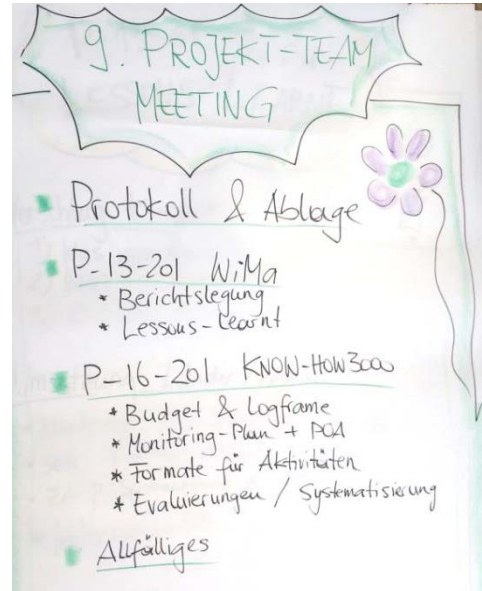 9. PROJEKT-TEAM
MEETING
Protokoll & Ablage
P-13-201 WiMa
* Berichtslegung
* Lessons-Learnt
P-16-201 KNOW-HOW3000
* Budget & Logframe
* Monitoring-Plan + POA
* Formate für Aktivitäten
* Evaluierungen / Systematisierung
Allfälliges